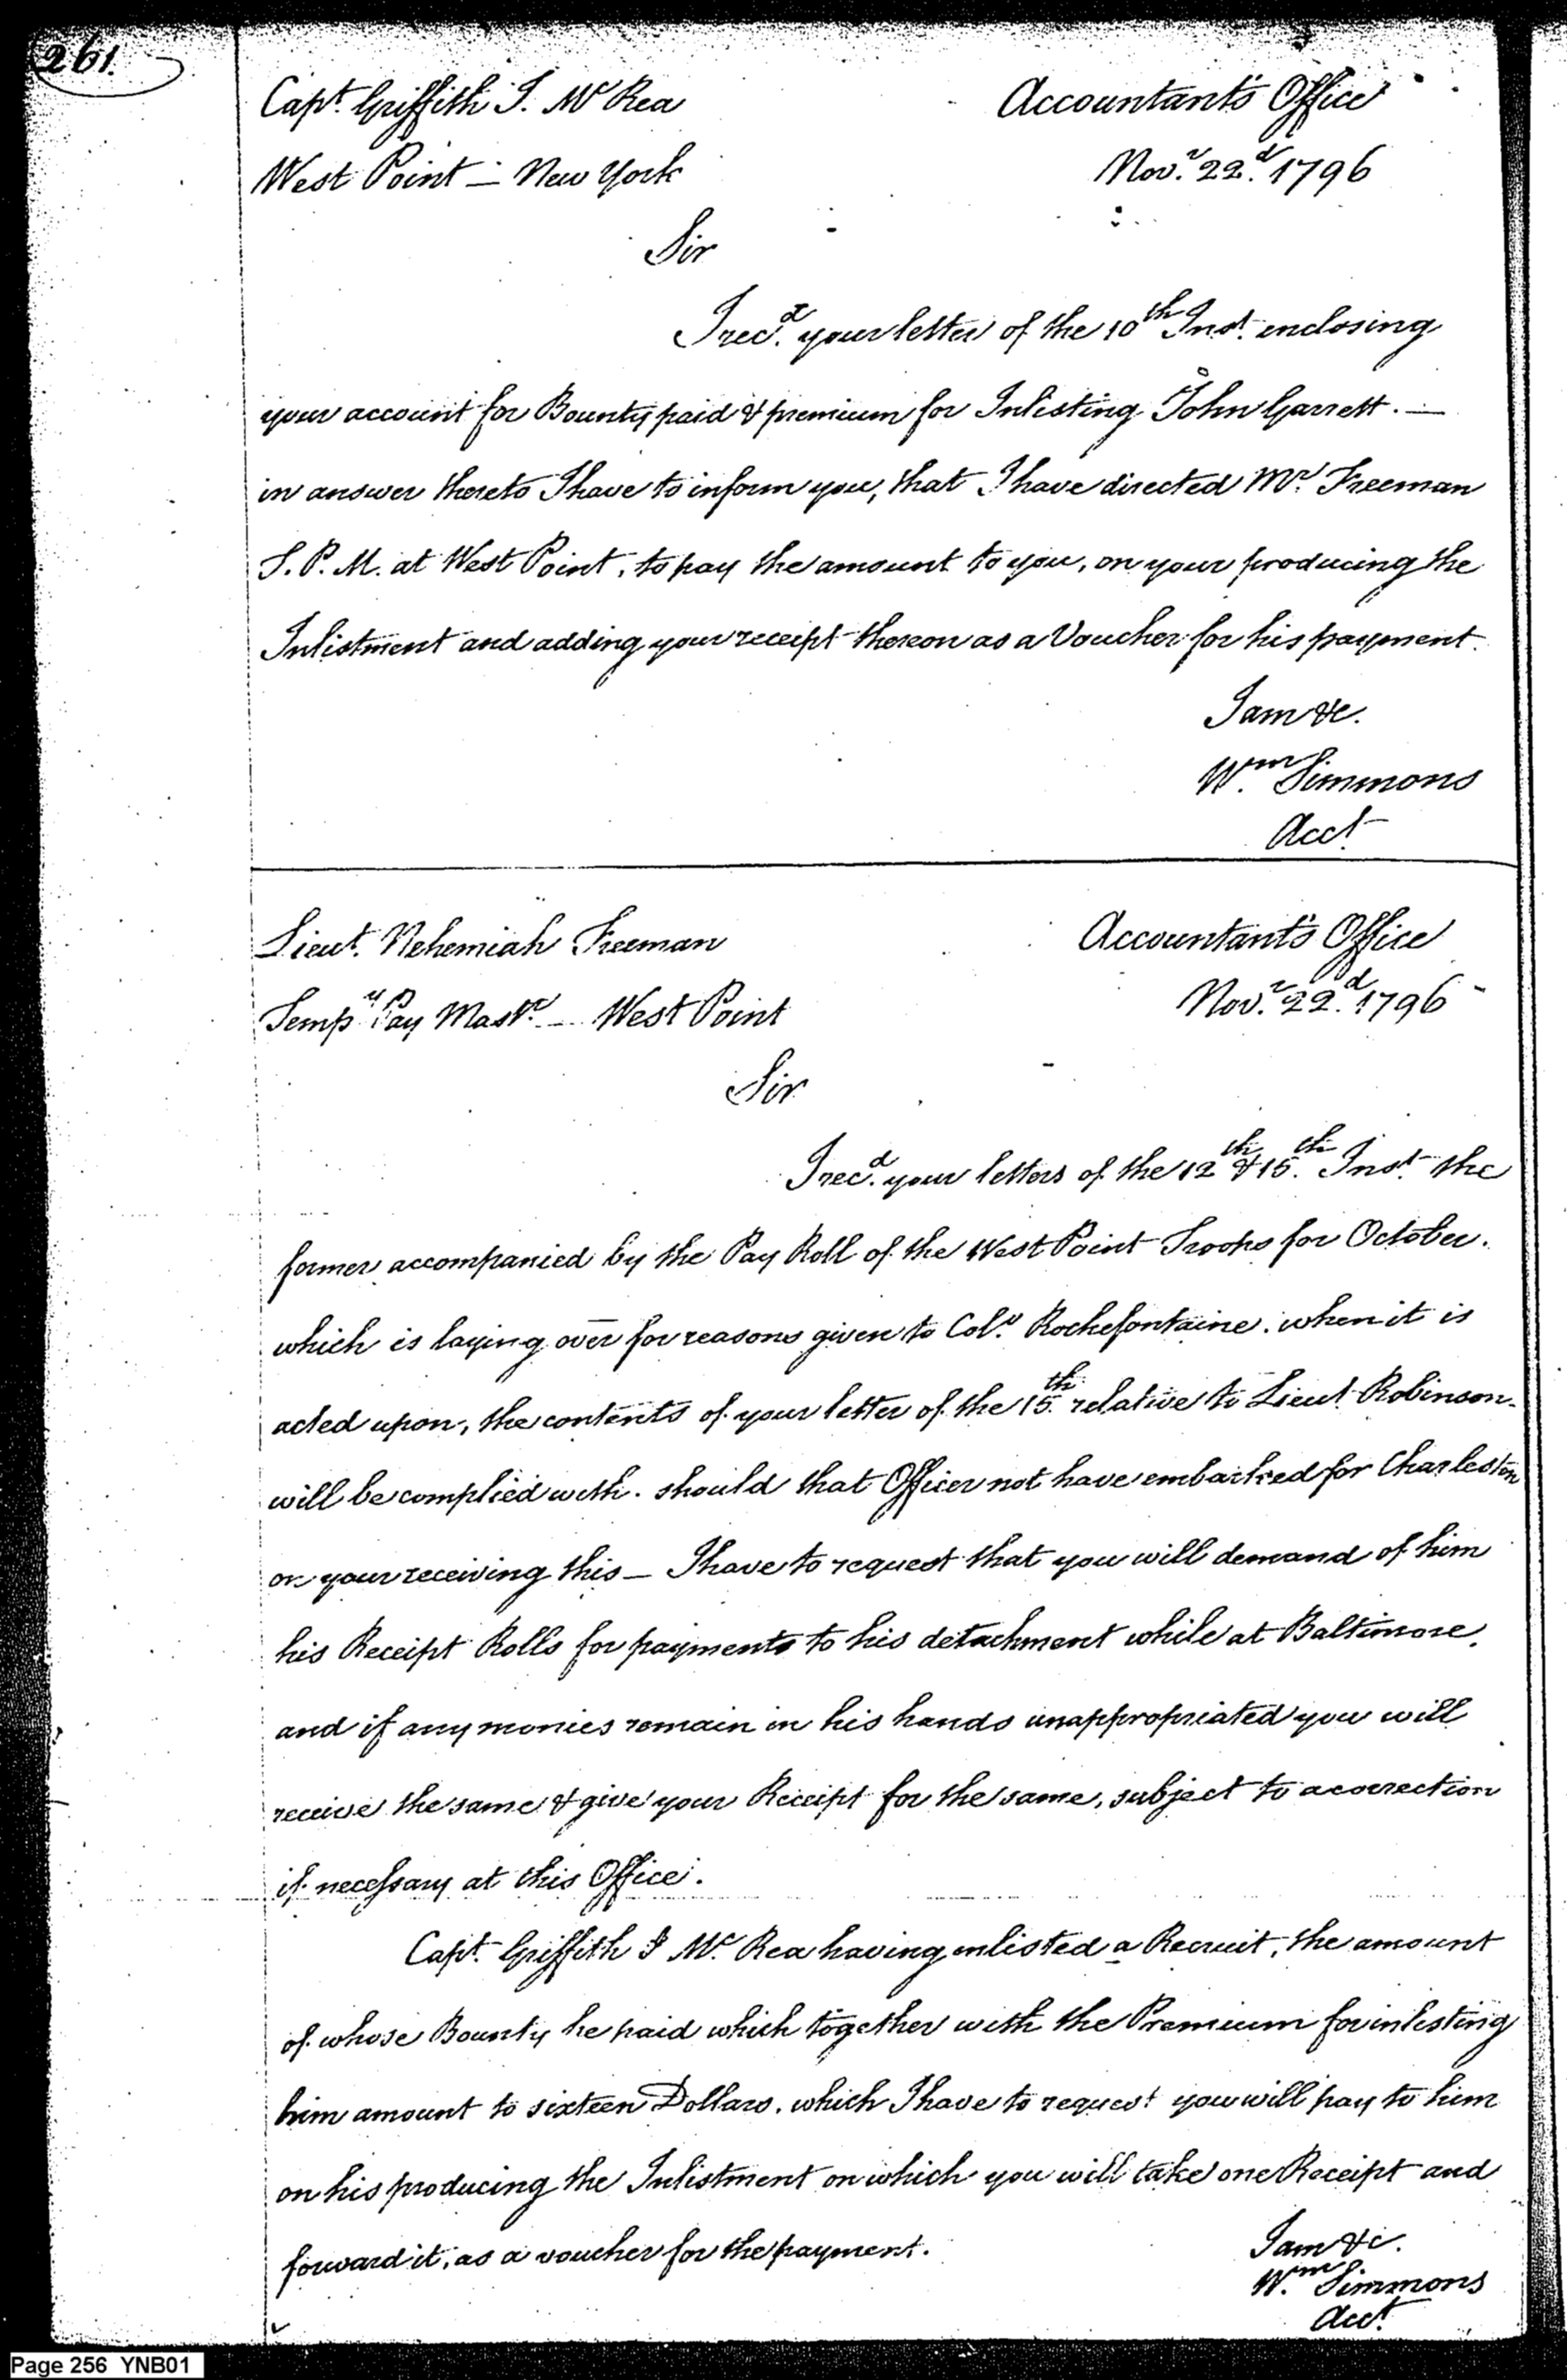 261.
Capt. Griffith J. McRea
Accountant's Office
West Point – New York
Novr. 22d. 1796
Sir
I recd. your letter of the 10th Inst. enclosing
your account for Bounty paid & premium for Inlisting John Garrett. —
in answer thereto I have to inform you, that I have directed Mr. Freeman
T. P. M. at West Point, to pay the amount to you, on your producing the
Inlistment and adding your receipt thereon as a Voucher for his payment.
I am &c.
Wm. Simmons
Acct.
Lieut. Nehemiah Freeman
Accountant's Office
Tempy Pay Mastr. – West Point
Novr. 22d. 1796
Sir
I recd. your letters of the 12th & 15th. Inst. the
former accompanied by the Pay Roll of the West Point Troops for October.
which is laying over for reasons given to Colo. Rochefontaine. when it is
acted upon, the contents of your letter of the 15th. relative to Lieut Robinson
will be complied with. should that Officer not have embarked for Charleston
on your receiving this – I have to request that you will demand of him
his Receipt Rolls for payments to his detachment while at Baltimore,
and if any monies remain in his hands unappropriated you will
receive the same & give your Receipt for the same, subject to a correction
if necessary at this Office.
Capt. Griffith J McRea having enlisted a Recruit, the amount
of whose Bounty he paid which together with the Premium for inlisting
him amount to sixteen Dollars. which I have to request you will pay to him
on his producing the Inlistment on which you will take one Receipt and
forward it, as a voucher for the payment.
I am &c.
Wm. Simmons
Acct.
Page 256 YNB01